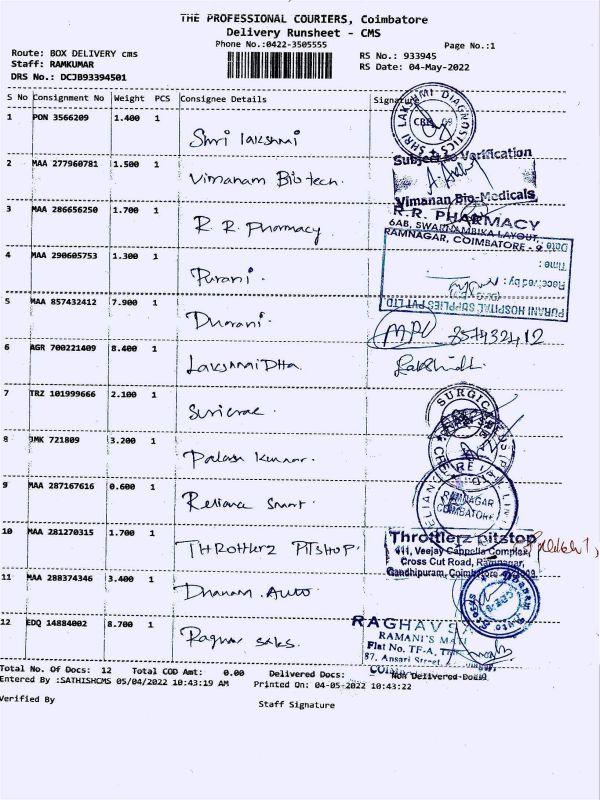 THE PROFESSIONAL COURIERS, Coimbatore
Delivery Runsheet - CMS
Phone No.:0422-3505555
Page No.:1
Route: BOX DELIVERY cms
RS No.: 933945
Staff: RAMKUMAR
RS Date: 04-May-2022
DRS No.: DCJB93394501
S No Consignment No Weight PCS Consignee Details Signature
1 PON 3566209 1.400 1 Shri lakshmi
SHRI LAKSHMI DIAGNOSTICS
Subject to Verification
2 MAA 277960781 1.500 1 Vimanam Biotech.
Vimanan Bio-Medicals
3 MAA 286656250 1.700 1 R.R. Pharmacy
R.R. PHARMACY
6AB, SWARNAMBIKA LAYOUT,
RAMNAGAR, COIMBATORE - 9
4 MAA 290605753 1.300 1 Purani.
Date :
Time :
Received by :
PURANI HOSPITAL SUPPLIES PVT LTD
5 MAA 857432412 7.900 1 Dharani.
857432412
6 AGR 700221409 8.400 1 LAKSHMIDHA
7 TRZ 101999666 2.100 1
SURGIC
8 JMK 721809 3.200 1 Palash Kumar.
9 MAA 287167616 0.600 1 Reliance Smart.
RAMNAGAR
COIMBATORE
10 MAA 281270315 1.700 1 THROTTLERZ PITSHOP.
Throttlerz pitstop
411, Veejay Cappella Complex,
Cross Cut Road, Ramnagar,
Gandhipuram, Coimbatore
11 MAA 288374346 3.400 1 Dhanam Auto.
12 EDQ 14884002 8.700 1
RAGHAV
RAMANI'S
Flat No. TF-A,
87, Ansari Street,
Total No. Of Docs: 12 Total COD Amt: 0.00 Delivered Docs: Non Delivered Docs:
Entered By :SATHISHCMS 05/04/2022 10:43:19 AM Printed On: 04-05-2022 10:43:22
Verified By Staff Signature